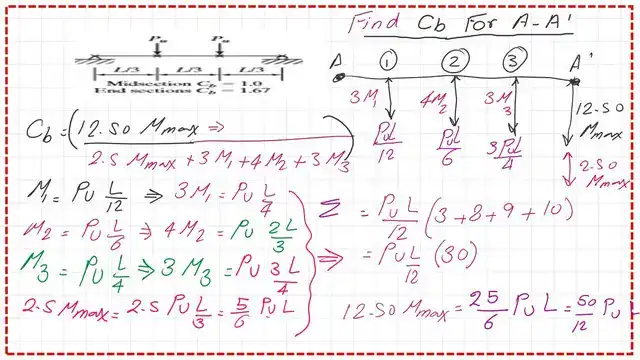 Find Cb For A-A'
Pu Pu
L/3 L/3 L/3
Midsection Cb = 1.0
End sections Cb = 1.67
A 1 2 3 A'
3M1 4M2 3M3 12.50 Mmax
PuL/12 PuL/6 3PuL/4 2.50 Mmax
Cb = (12.50 Mmax ⇒
2.5 Mmax + 3M1 + 4M2 + 3M3)
M1 = Pu L/12 ⇒ 3M1 = Pu L/4
M2 = Pu L/6 ⇒ 4M2 = Pu 2L/3
M3 = Pu L/4 ⇒ 3M3 = Pu 3L/4
2.5 Mmax = 2.5 Pu L/3 = 5/6 Pu L
Σ = PuL/12 (3+8+9+10)
⇒ = PuL/12 (30)
12.50 Mmax = 25/6 Pu L = 50/12 Pu L